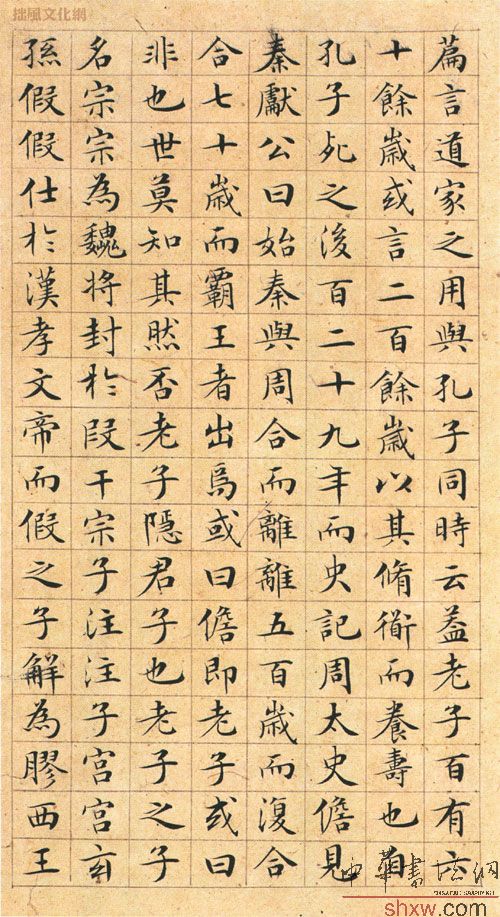 拙風文化網
篇言道家之用與孔子同時云蓋老子百有六
十餘歲或言二百餘歲以其脩衜而養壽也自
孔子死之後百二十九年而史記周太史儋見
秦獻公曰始秦與周合而離離五百歲而復合
合七十歲而霸王者出焉或曰儋即老子或曰
非也世莫知其然否老子隱君子也老子之子
名宗宗為魏將封於段干宗子注注子宮宮玄
孫假假仕於漢孝文帝而假之子解為膠西王
中華書法網
shxw.com